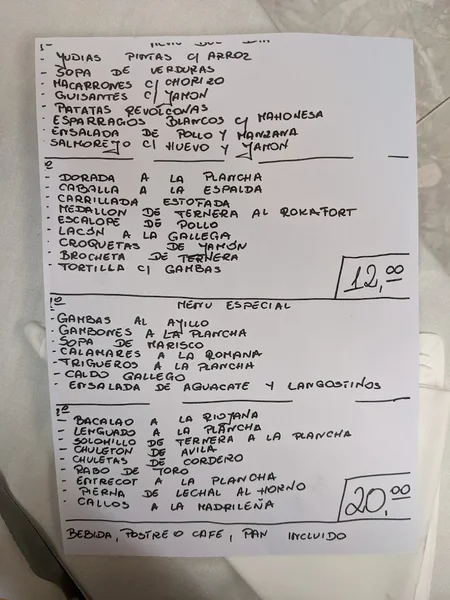 1º MENU DEL DIA
- YUDIAS PINTAS C/ ARROZ
- SOPA DE VERDURAS
- MACARRONES C/ CHORIZO
- GUISANTES C/ YAMON
- PATATAS REVOLCONAS
- ESPARRAGOS BLANCOS C/ MAHONESA
- ENSALADA DE POLLO Y MANZANA
- SALMOREJO C/ HUEVO Y YAMON
2º
- DORADA A LA PLANCHA
- CABALLA A LA ESPALDA
- CARRILLADA ESTOFADA
- MEDALLON DE TERNERA AL ROKAFORT
- ESCALOPE DE POLLO
- LACÓN A LA GALLEGA
- CROQUETAS DE YAMÓN
- BROCHETA DE TERNERA
- TORTILLA C/ GAMBAS
12,00
1º MENU ESPECIAL
- GAMBAS AL AYILLO
- GAMBONES A LA PLANCHA
- SOPA DE MARISCO
- CALAMARES A LA ROMANA
- TRIGUEROS A LA PLANCHA
- CALDO GALLEGO
- ENSALADA DE AGUACATE Y LANGOSTINOS
2º
- BACALAO A LA RIOYANA
- LENGUADO A LA PLANCHA
- SOLOMILLO DE TERNERA A LA PLANCHA
- CHULETON DE AVILA
- CHULETAS DE CORDERO
- RABO DE TORO
- ENTRECOT A LA PLANCHA
- PIERNA DE LECHAL AL HORNO
- CALLOS A LA MADRILEÑA
20,00
BEBIDA, POSTRE O CAFE, PAN INCLUIDO